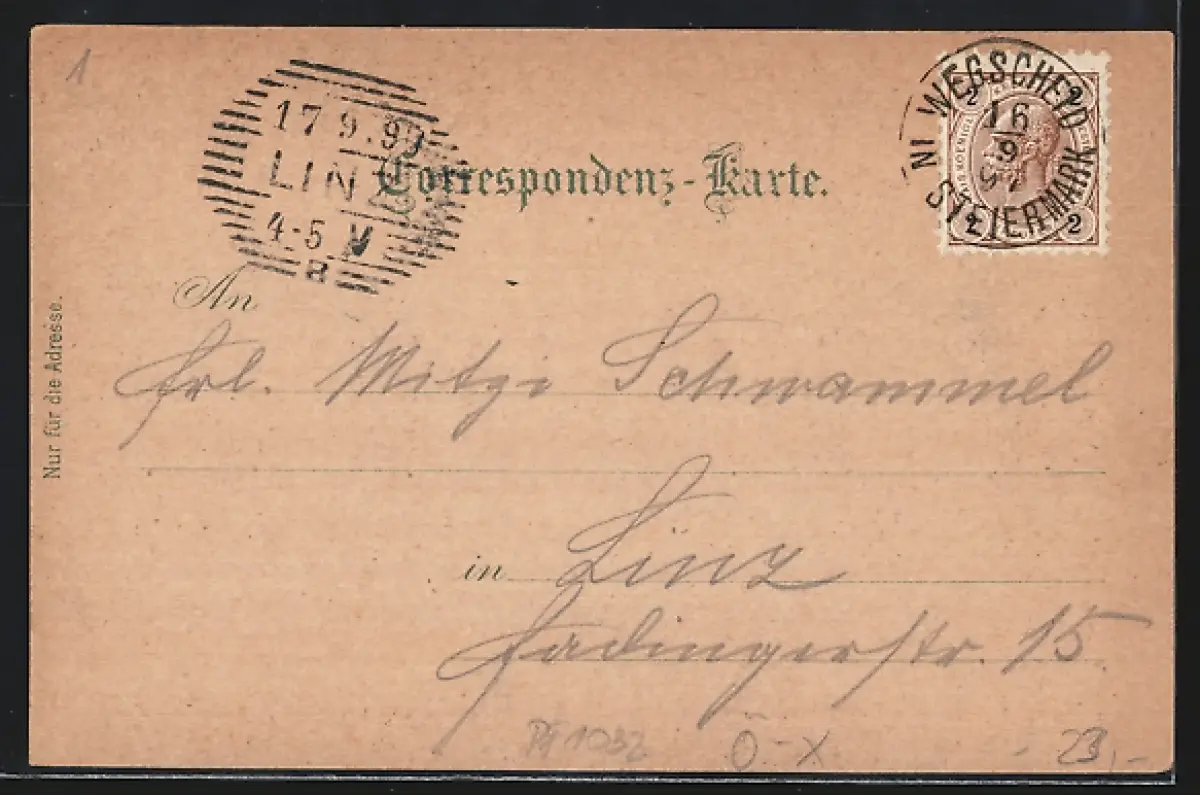 1
17 9.99
LINZ
4-5 V
a
WEGSCHEID IN STEIERMARK
16
9
2 2
2 2
Correspondenz-Karte.
Nur für die Adresse.
An
Frl. Mitzi Schwammel
in Linz
Fadingerstr. 15
1032
Ö-X
- 23,-